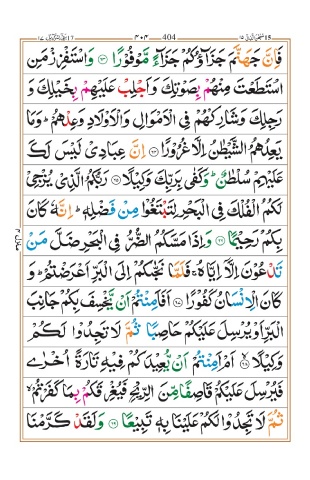 404
فَاِنَّ جَهَنَّمَ جَزَآؤُكُمْ جَزَآءً مَّوْفُوْرًا ﴿۶۳﴾ وَاسْتَفْزِزْ مَنِ
اسْتَطَعْتَ مِنْهُمْ بِصَوْتِكَ وَاَجْلِبْ عَلَيْهِمْ بِخَيْلِكَ وَ
رَجِلِكَ وَشَارِكْهُمْ فِي الْاَمْوَالِ وَالْاَوْلَادِ وَعِدْهُمْ ؕ وَمَا
يَعِدُهُمُ الشَّيْطٰنُ اِلَّا غُرُوْرًا ﴿۶۴﴾ اِنَّ عِبَادِيْ لَيْسَ لَكَ
عَلَيْهِمْ سُلْطٰنٌ ؕ وَكَفٰى بِرَبِّكَ وَكِيْلًا ﴿۶۵﴾ رَبُّكُمُ الَّذِيْ يُزْجِيْ
لَكُمُ الْفُلْكَ فِي الْبَحْرِ لِتَبْتَغُوْا مِنْ فَضْلِهٖ ؕ اِنَّهٗ كَانَ
بِكُمْ رَحِيْمًا ﴿۶۶﴾ وَاِذَا مَسَّكُمُ الضُّرُّ فِي الْبَحْرِ ضَلَّ مَنْ
تَدْعُوْنَ اِلَّاۤ اِيَّاهُ ۚ فَلَمَّا نَجّٰىكُمْ اِلَى الْبَرِّ اَعْرَضْتُمْ ؕ وَ
كَانَ الْاِنْسَانُ كَفُوْرًا ﴿۶۷﴾ اَفَاَمِنْتُمْ اَنْ يَّخْسِفَ بِكُمْ جَانِبَ
الْبَرِّ اَوْ يُرْسِلَ عَلَيْكُمْ حَاصِبًا ثُمَّ لَا تَجِدُوْا لَكُمْ
وَكِيْلًا ﴿۶۸﴾ اَمْ اَمِنْتُمْ اَنْ يُّعِيْدَكُمْ فِيْهِ تَارَةً اُخْرٰى
فَيُرْسِلَ عَلَيْكُمْ قَاصِفًا مِّنَ الرِّيْحِ فَيُغْرِقَكُمْ بِمَا كَفَرْتُمْ ۙ
ثُمَّ لَا تَجِدُوْا لَكُمْ عَلَيْنَا بِهٖ تَبِيْعًا ﴿۶۹﴾ وَلَقَدْ كَرَّمْنَا